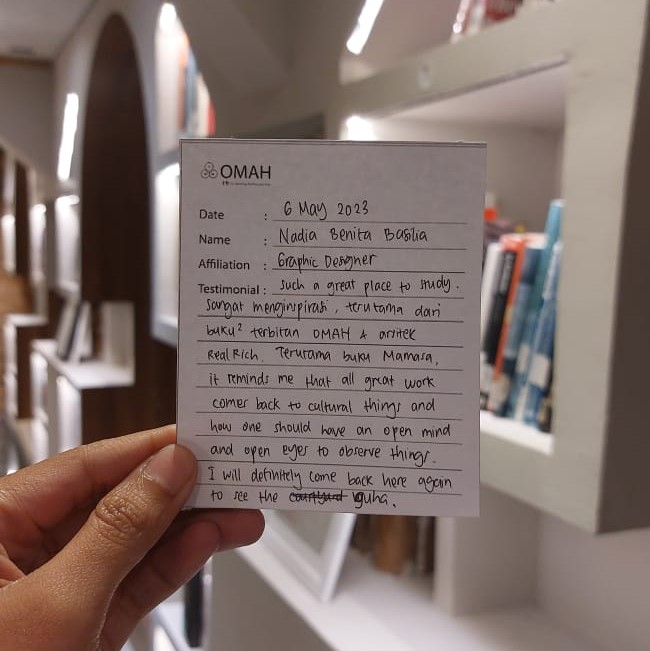 OMAH
Date : 6 May 2023
Name : Nadia Benita Basilia
Affiliation : Graphic Designer
Testimonial : such a great place to study.
Sangat menginspirasi, terutama dari
buku² terbitan OMAH & arsitek
Real Rich. Terurama buku Mamasa,
it reminds me that all great work
comes back to cultural things and
how one should have an open mind
and open eyes to observe things.
I will definitely come back here again
to see the courtyard guha.